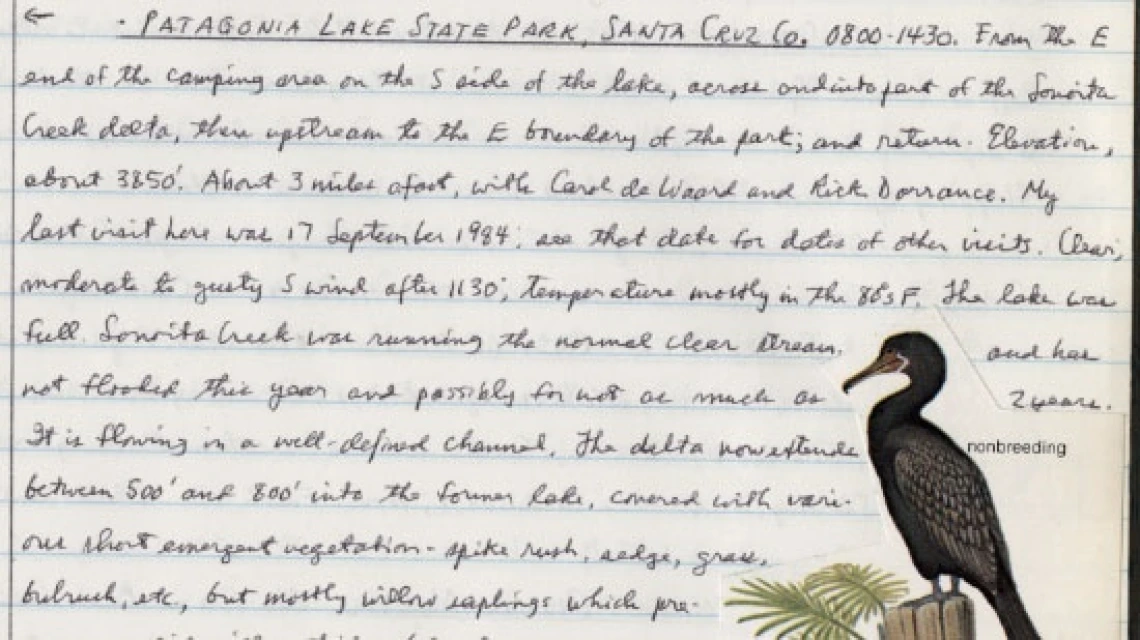 ← · PATAGONIA LAKE STATE PARK, SANTA CRUZ Co. 0800-1430. From the E
end of the camping area on the S side of the lake, across and into part of the Sonoita
Creek delta, then upstream to the E boundary of the park; and return. Elevation,
about 3850'. About 3 miles afoot, with Carol de Waard and Rick Dorrance. My
last visit here was 17 September 1984; see that date for dates of other visits. Clear;
moderate to gusty S wind after 1130; temperature mostly in the 80's F. The lake was
full. Sonoita Creek was running the normal clear stream, and has
not flooded this year and possibly for not as much as 2 years.
It is flowing in a well-defined channel. The delta now extends
nonbreeding
between 500' and 800' into the former lake, covered with vari-
ous short emergent vegetation - spike rush, sedge, grass,
bulrush, etc., but mostly willow saplings which pre-